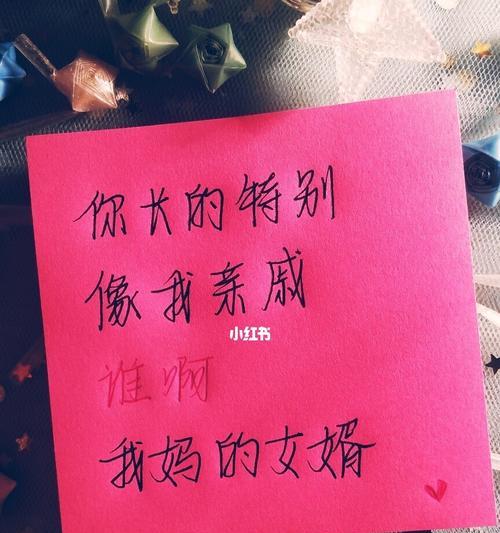 你长的特别
像我亲戚
小红书
谁啊
我妈的女婿